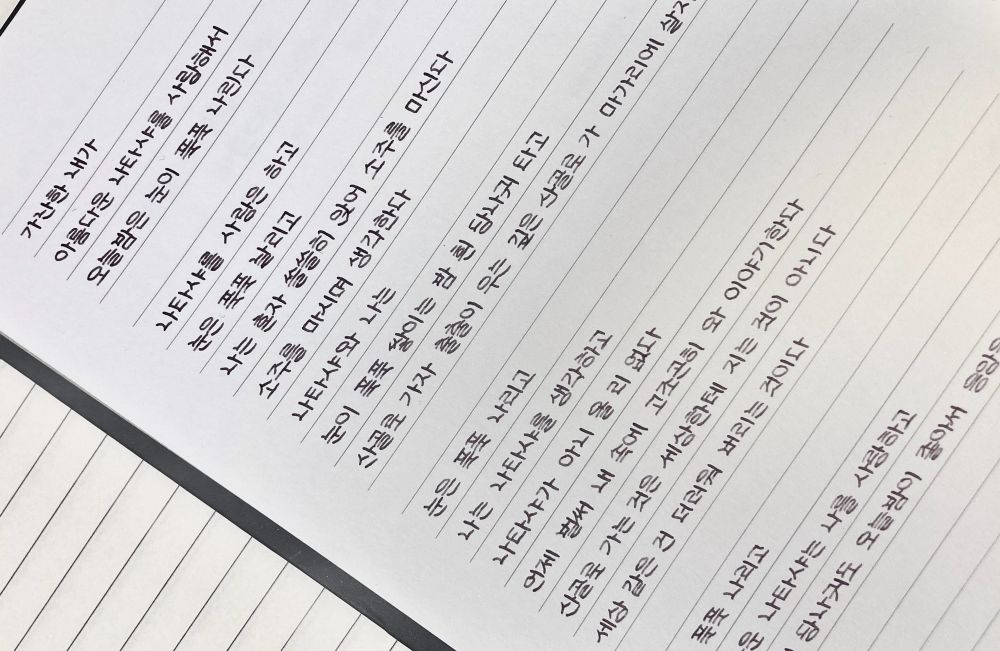 가난한 내가
아름다운 나타샤를 사랑해서
오늘밤은 눈이 푹푹 나린다
나타샤를 사랑은 하고
눈은 푹푹 날리고
나는 혼자 쓸쓸히 앉어 소주를 마신다
소주를 마시며 생각한다
나타샤와 나는
눈이 푹푹 쌓이는 밤 흰 당나귀 타고
산골로 가자 출출이 우는 깊은 산골로 가 마가리에 살자
눈은 푹푹 나리고
나는 나타샤를 생각하고
나타샤가 아니 올 리 없다
언제 벌써 내 속에 고조곤히 와 이야기한다
산골로 가는 것은 세상한테 지는 것이 아니다
세상 같은 건 더러워 버리는 것이다
푹푹 나리고
운 나타샤는 나를 사랑하고
당나귀도 오늘밤이 좋아서 응앙